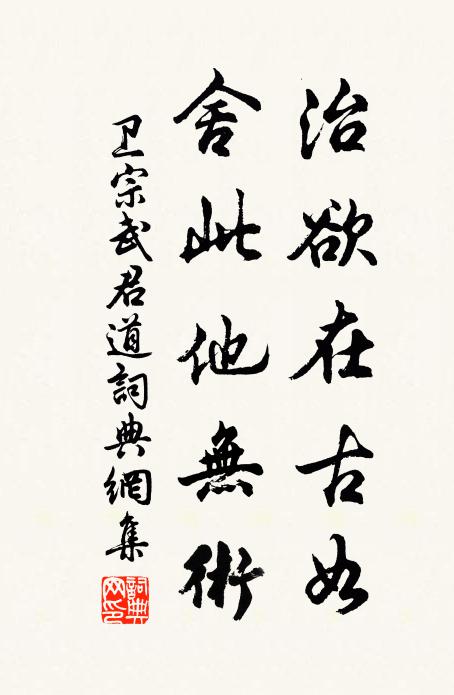 治欲在古如
舍此他無術
卫宗武君道詞典網集
詞典網印